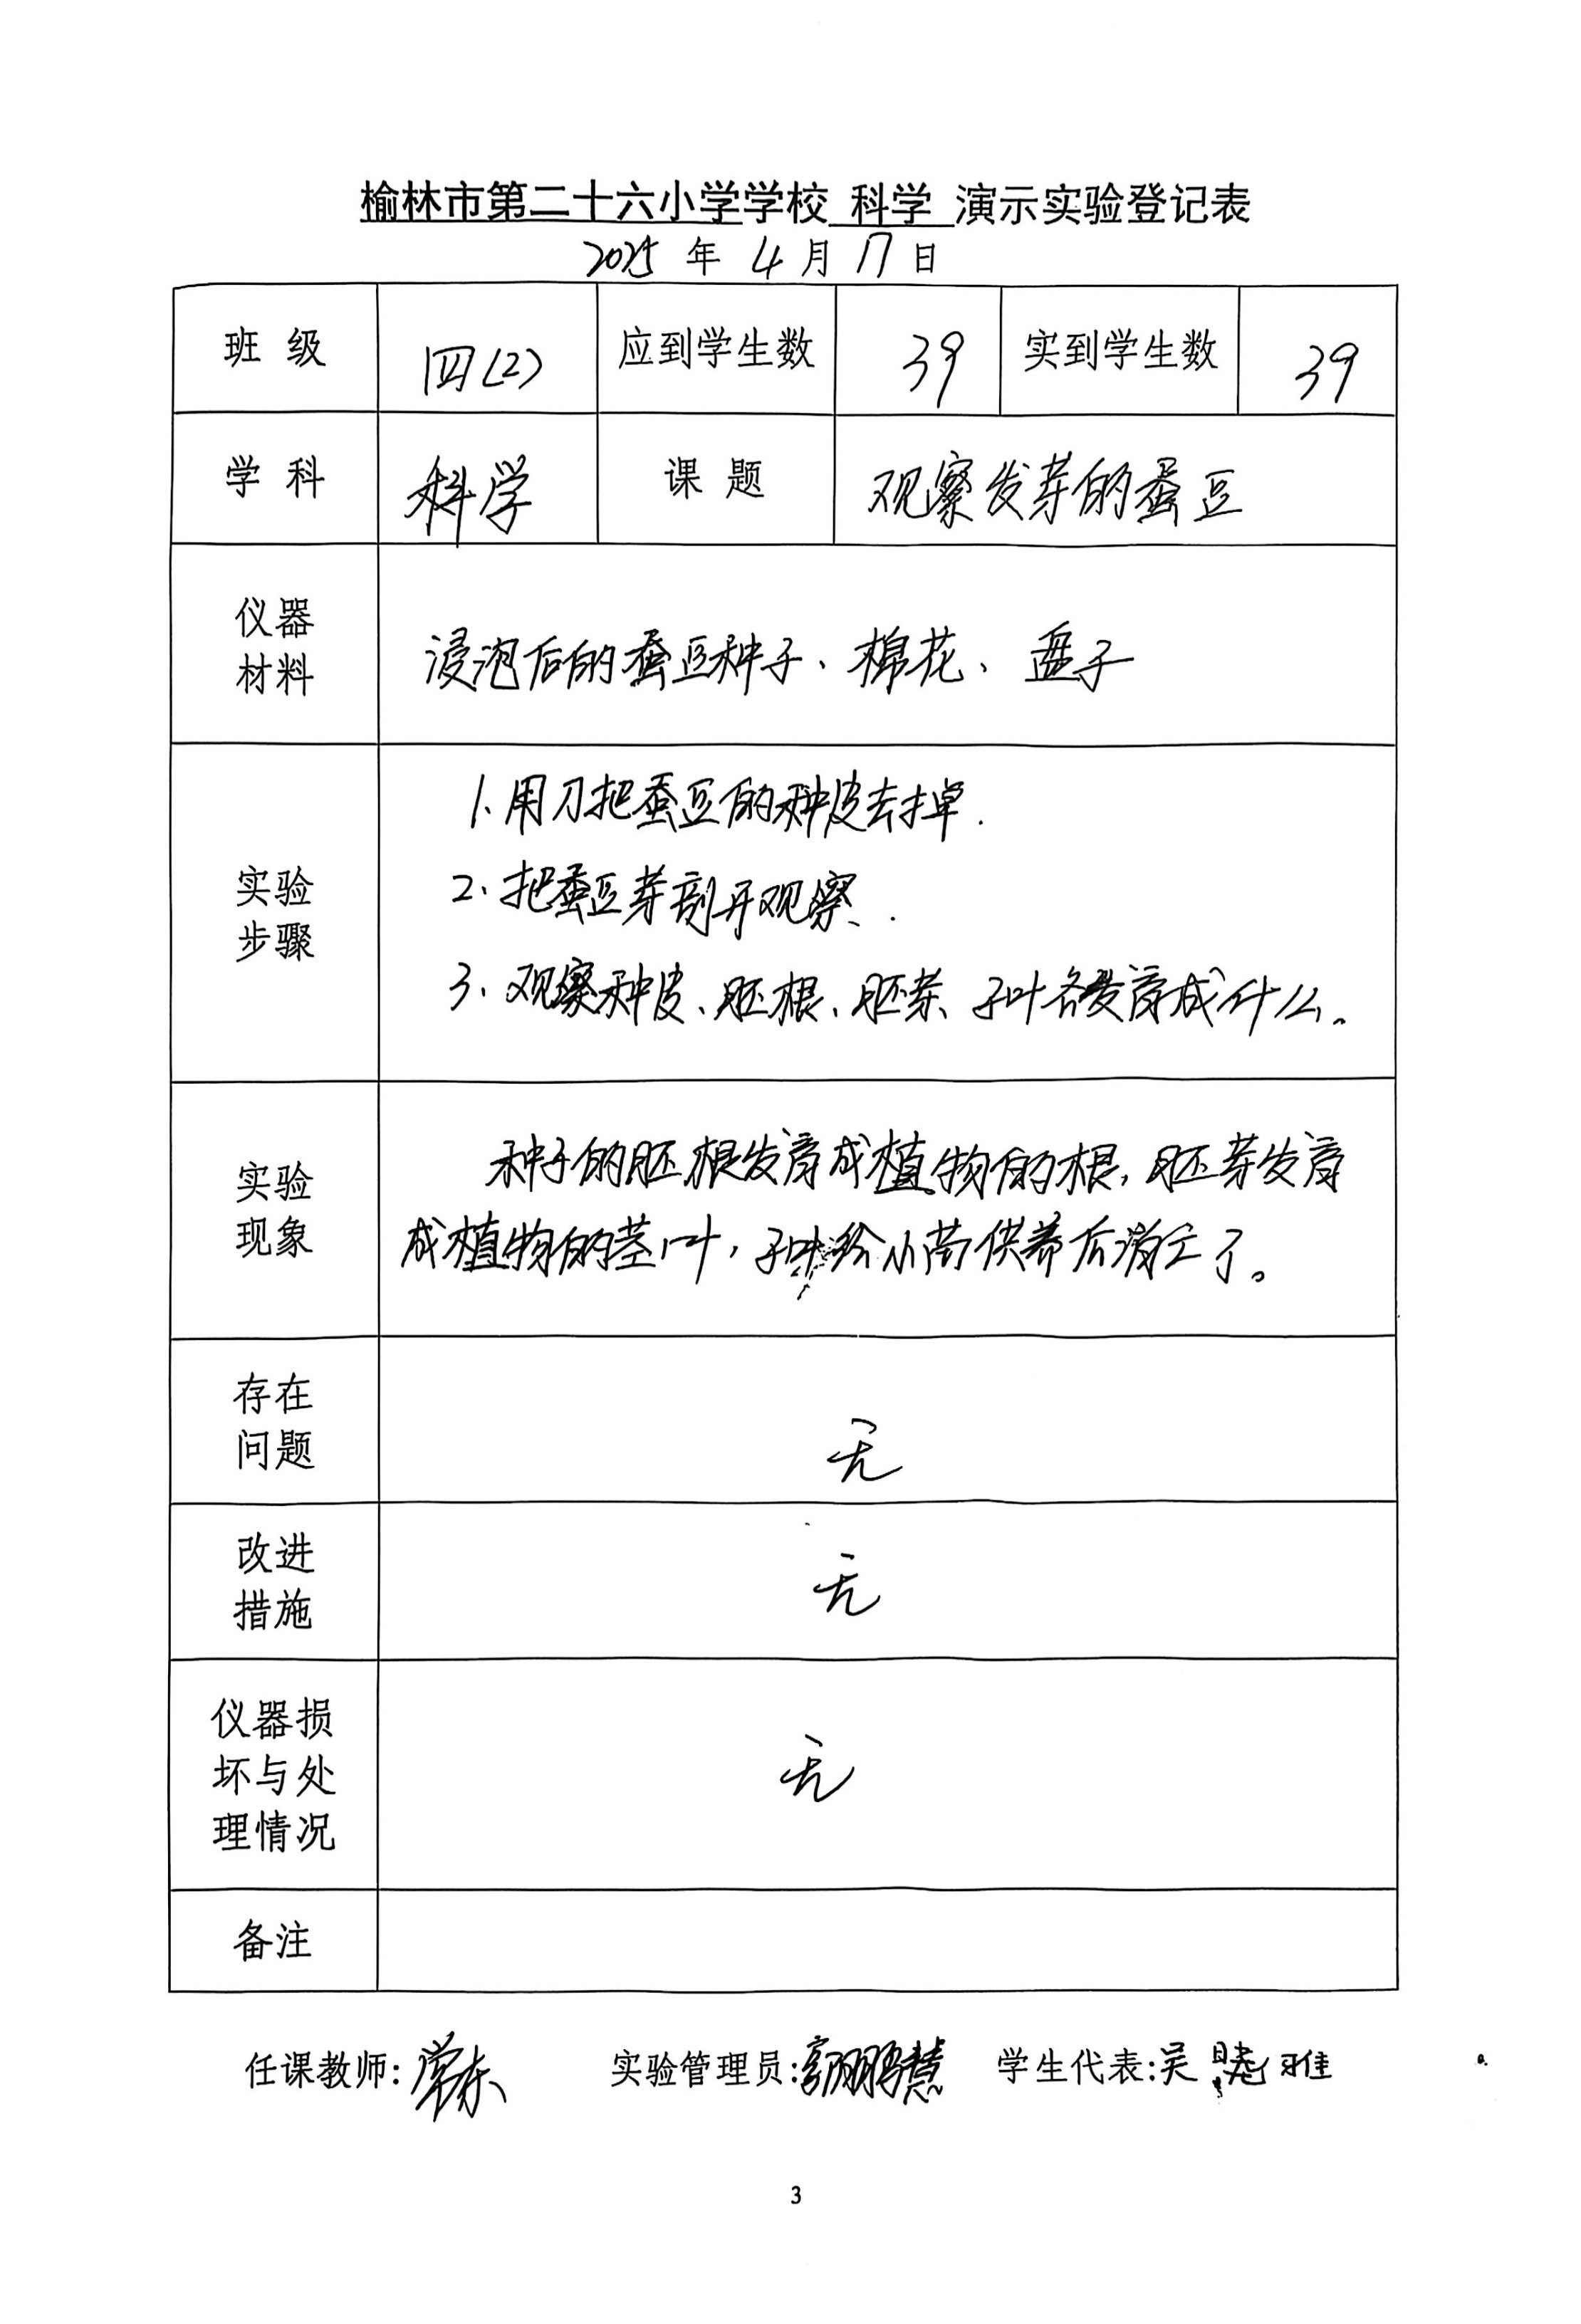 榆林市第二十六小学学校 科学 演示实验登记表
2025 年 4 月 17 日
班 级 四(2) 应到学生数 39 实到学生数 39
学 科 科学 课 题 观察发芽的蚕豆
仪器
材料
浸泡后的蚕豆种子、棉花、盘子
实验
步骤
1、用刀把蚕豆的种皮去掉.
2、把蚕豆芽剖开观察.
3、观察种皮、胚根、胚芽、子叶各发育成什么。
实验
现象
种子的胚根发育成植物的根,胚芽发育
成植物的茎叶,子叶给小苗供养后消亡了。
存在
问题
无
改进
措施
无
仪器损
坏与处
理情况
无
备注
任课教师: 实验管理员: 学生代表:吴 雅
3